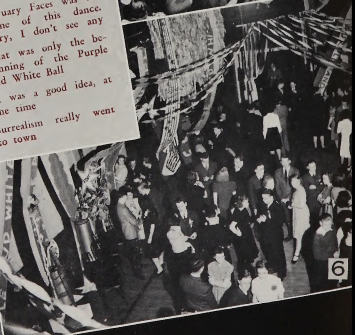 uary Faces was
ne of this dance.
ry, I don't see any
at was only the be-
nning of the Purple
d White Ball
was a good idea, at
e time
urrealism really went
o town
6